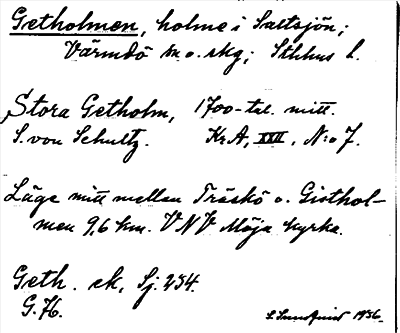 Getholmen, holme i Saltsjön;
Värmdö sn o. skg; Sthlms l.
Stora Getholm, 1700-tal. mitt.
S. von Schultz. Kr.A, XXII, N:o 7.
Läge mitt mellan Träskö o. Gisthol-
men 9,6 km. VNV Möja kyrka.
Geth. ek, Sj. 254.
G. 76.
S. Sundquist 1936.